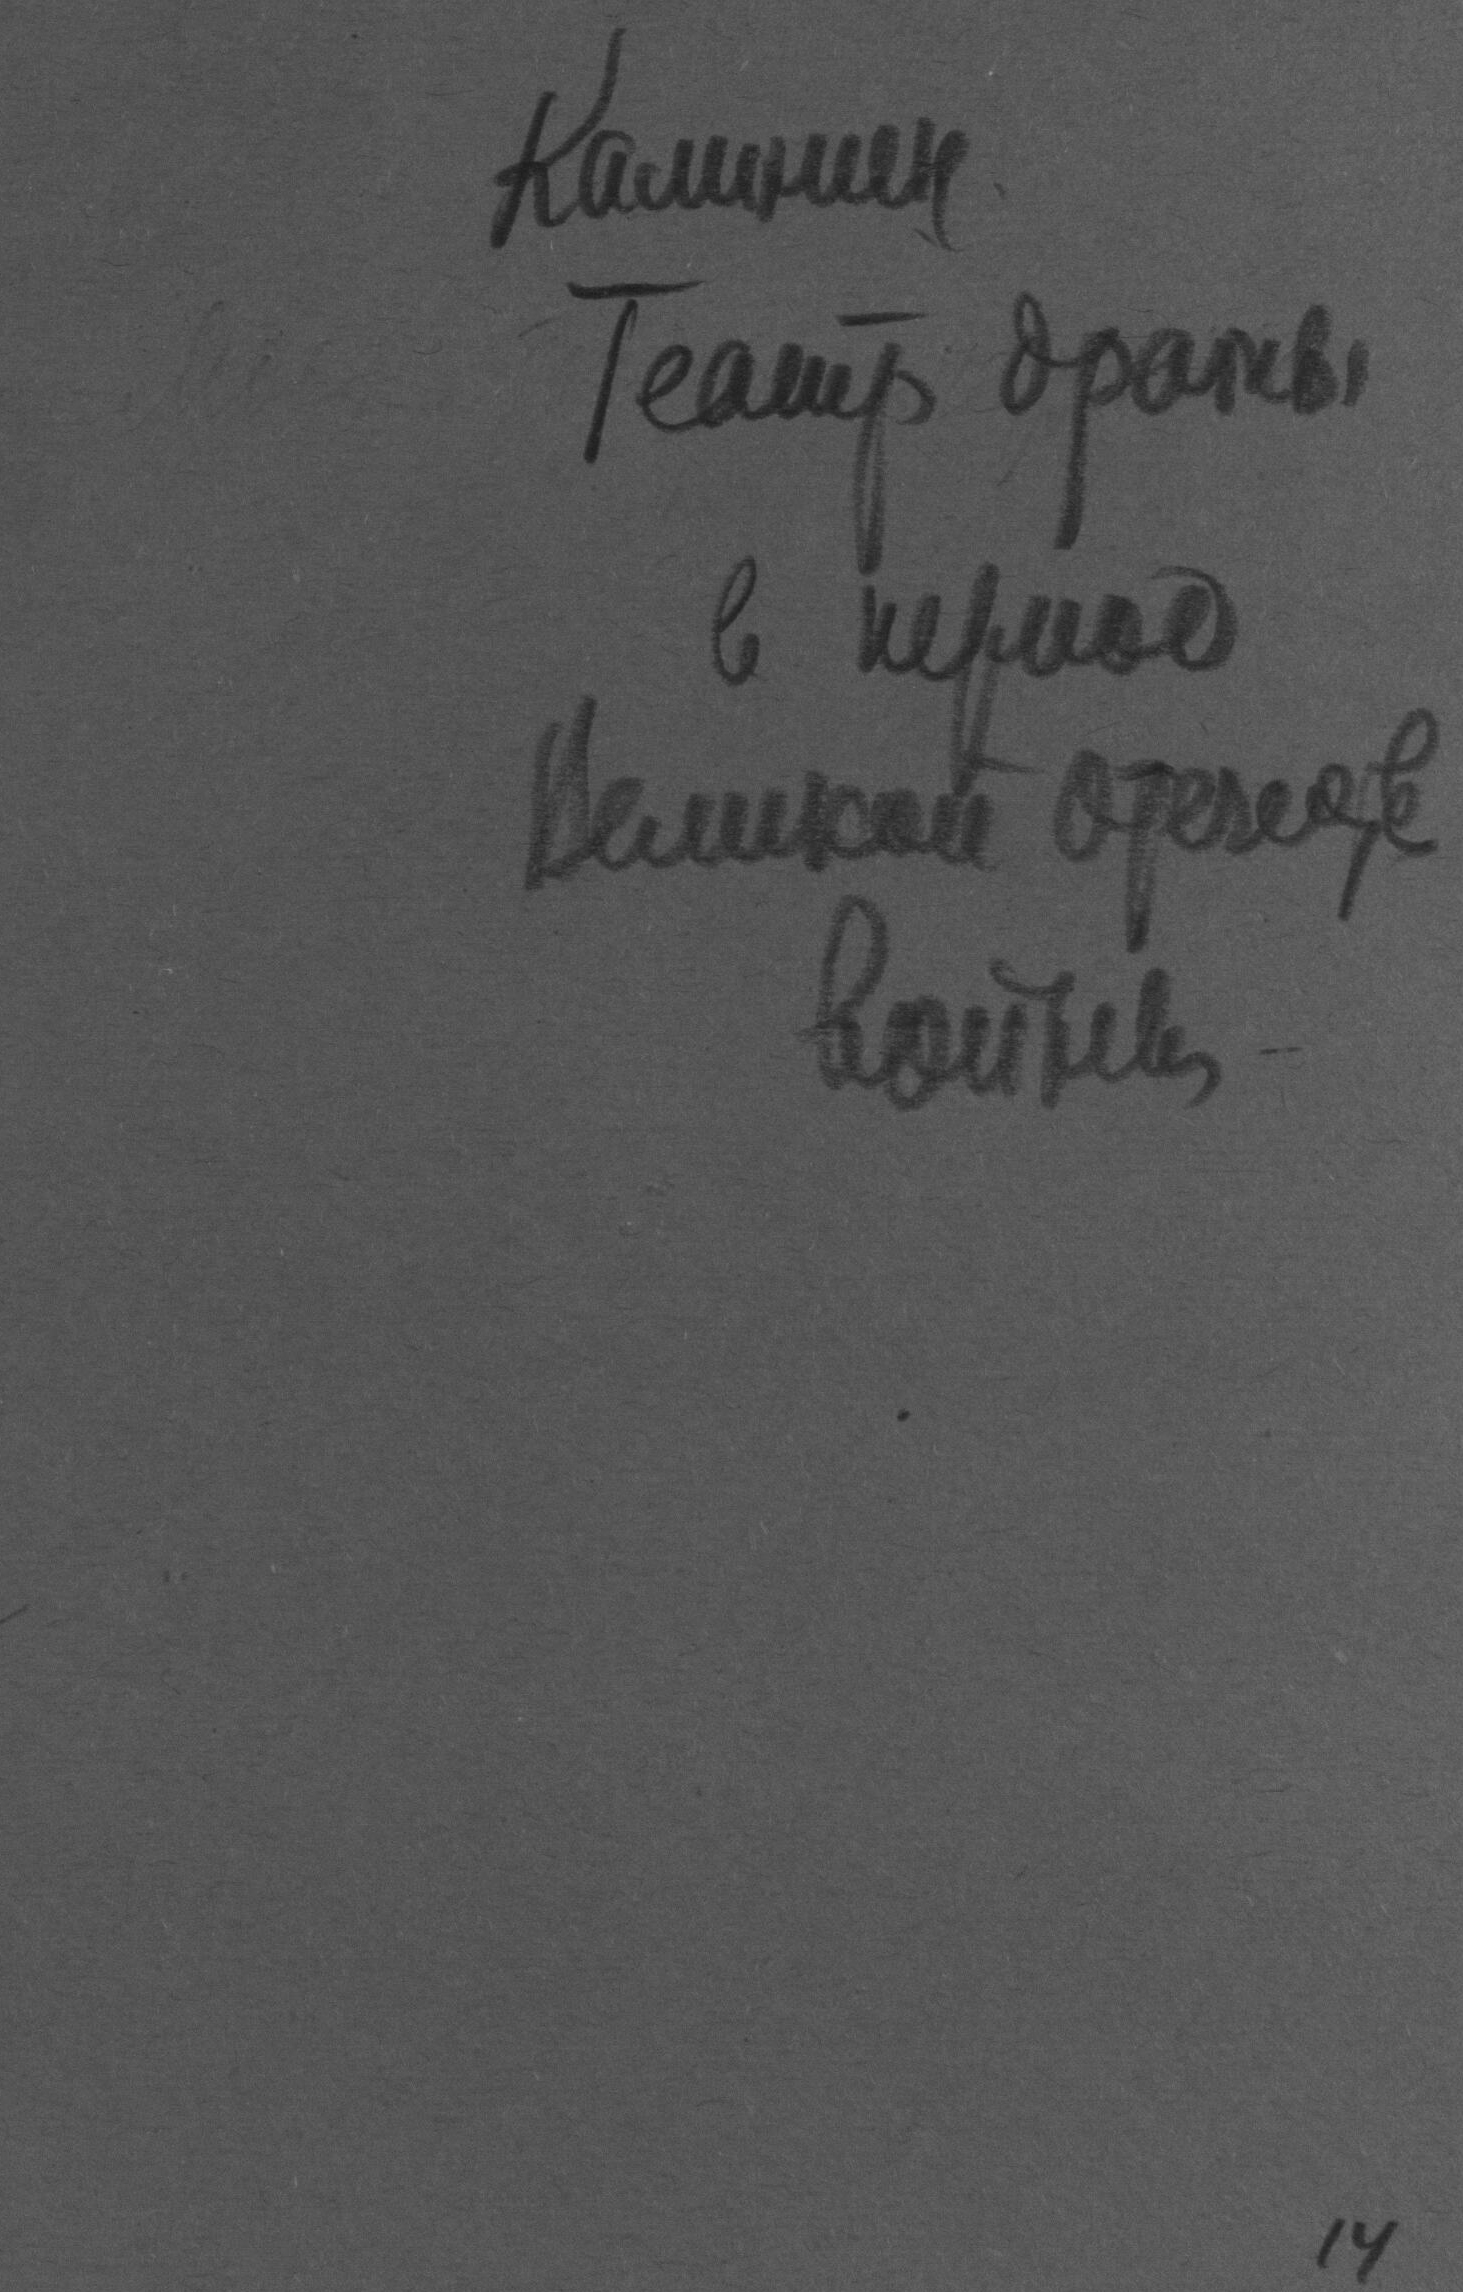 Калинин
Театр драмы
в период
Великой отечеств
войны
14